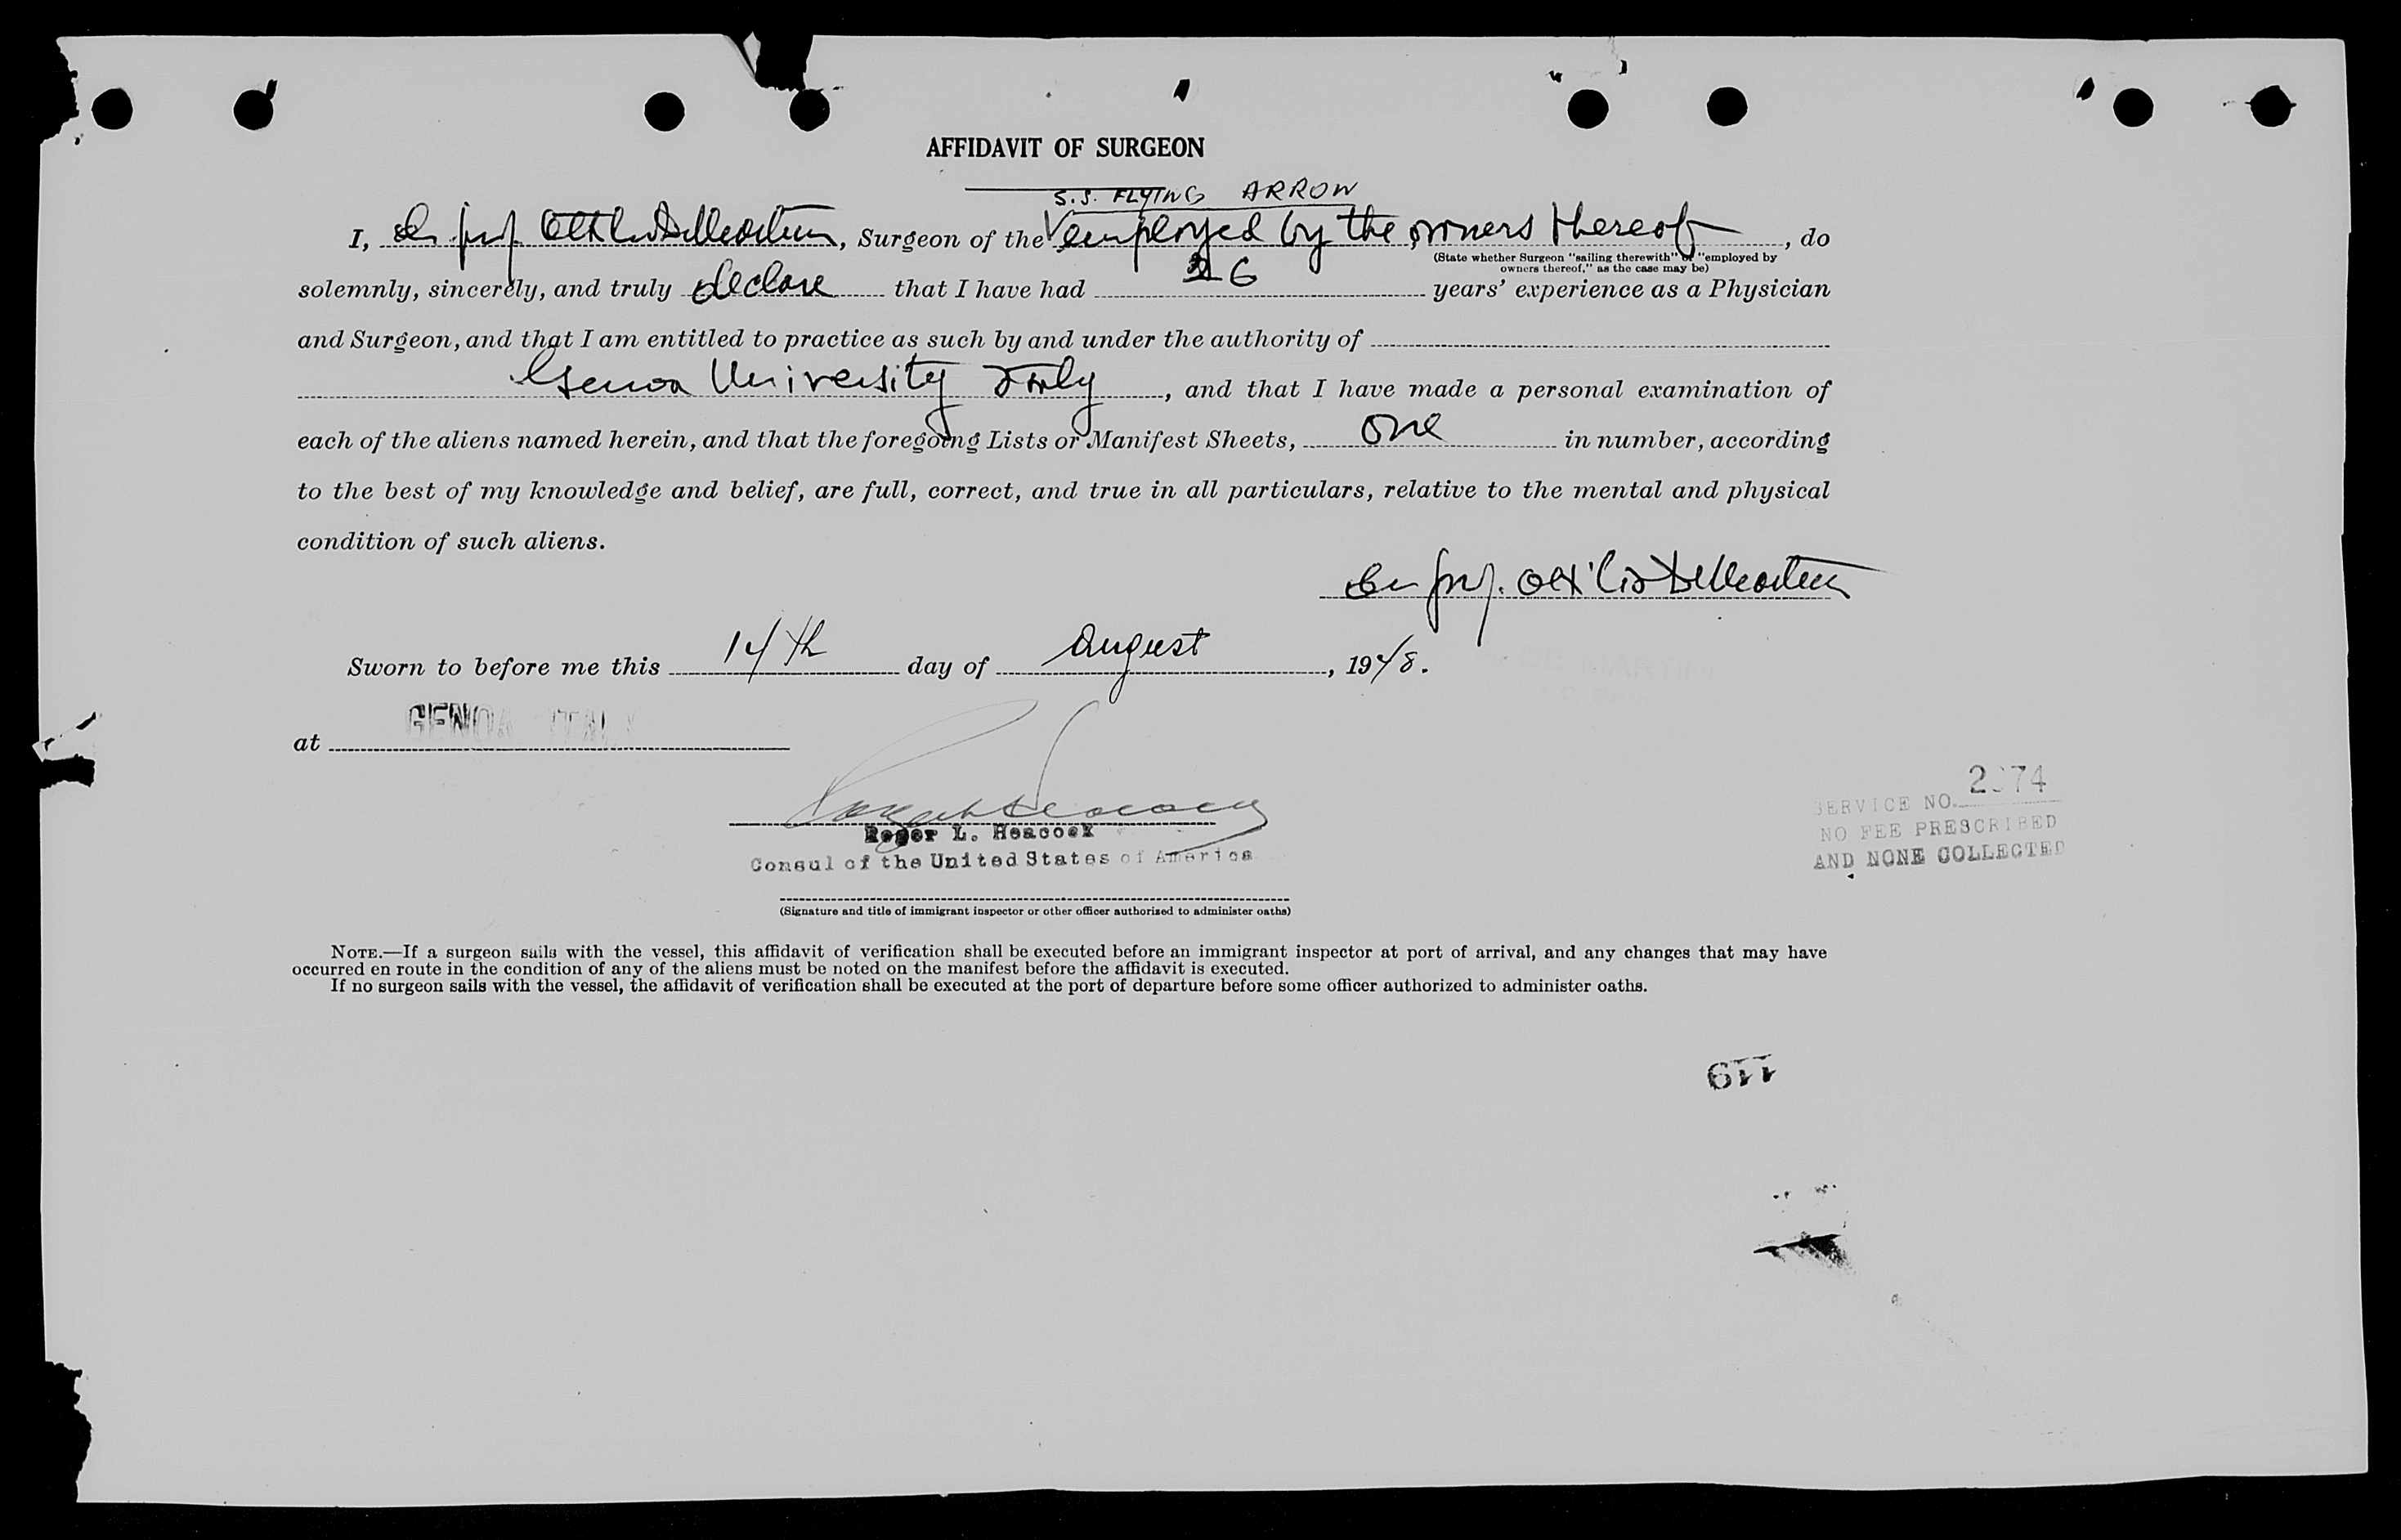 AFFIDAVIT OF SURGEON
S.S. FLYING ARROW
I, Dr prof. Attilio De Martini, Surgeon of the employed by the owners thereof, do
(State whether Surgeon "sailing therewith" or "employed by
owners thereof," as the case may be)
solemnly, sincerely, and truly declare that I have had 26 years' experience as a Physician
and Surgeon, and that I am entitled to practice as such by and under the authority of
Genoa University Italy, and that I have made a personal examination of
each of the aliens named herein, and that the foregoing Lists or Manifest Sheets, one in number, according
to the best of my knowledge and belief, are full, correct, and true in all particulars, relative to the mental and physical
condition of such aliens.
Dr prof. Attilio De Martini
Sworn to before me this 14th day of August, 1948.
at GENOA ITALY
Roger L. Heacock
Consul of the United States of America
(Signature and title of immigrant inspector or other officer authorized to administer oaths)
SERVICE NO.
NO FEE PRESCRIBED
AND NONE COLLECTED
NOTE.—If a surgeon sails with the vessel, this affidavit of verification shall be executed before an immigrant inspector at port of arrival, and any changes that may have
occurred en route in the condition of any of the aliens must be noted on the manifest before the affidavit is executed.
If no surgeon sails with the vessel, the affidavit of verification shall be executed at the port of departure before some officer authorized to administer oaths.
119